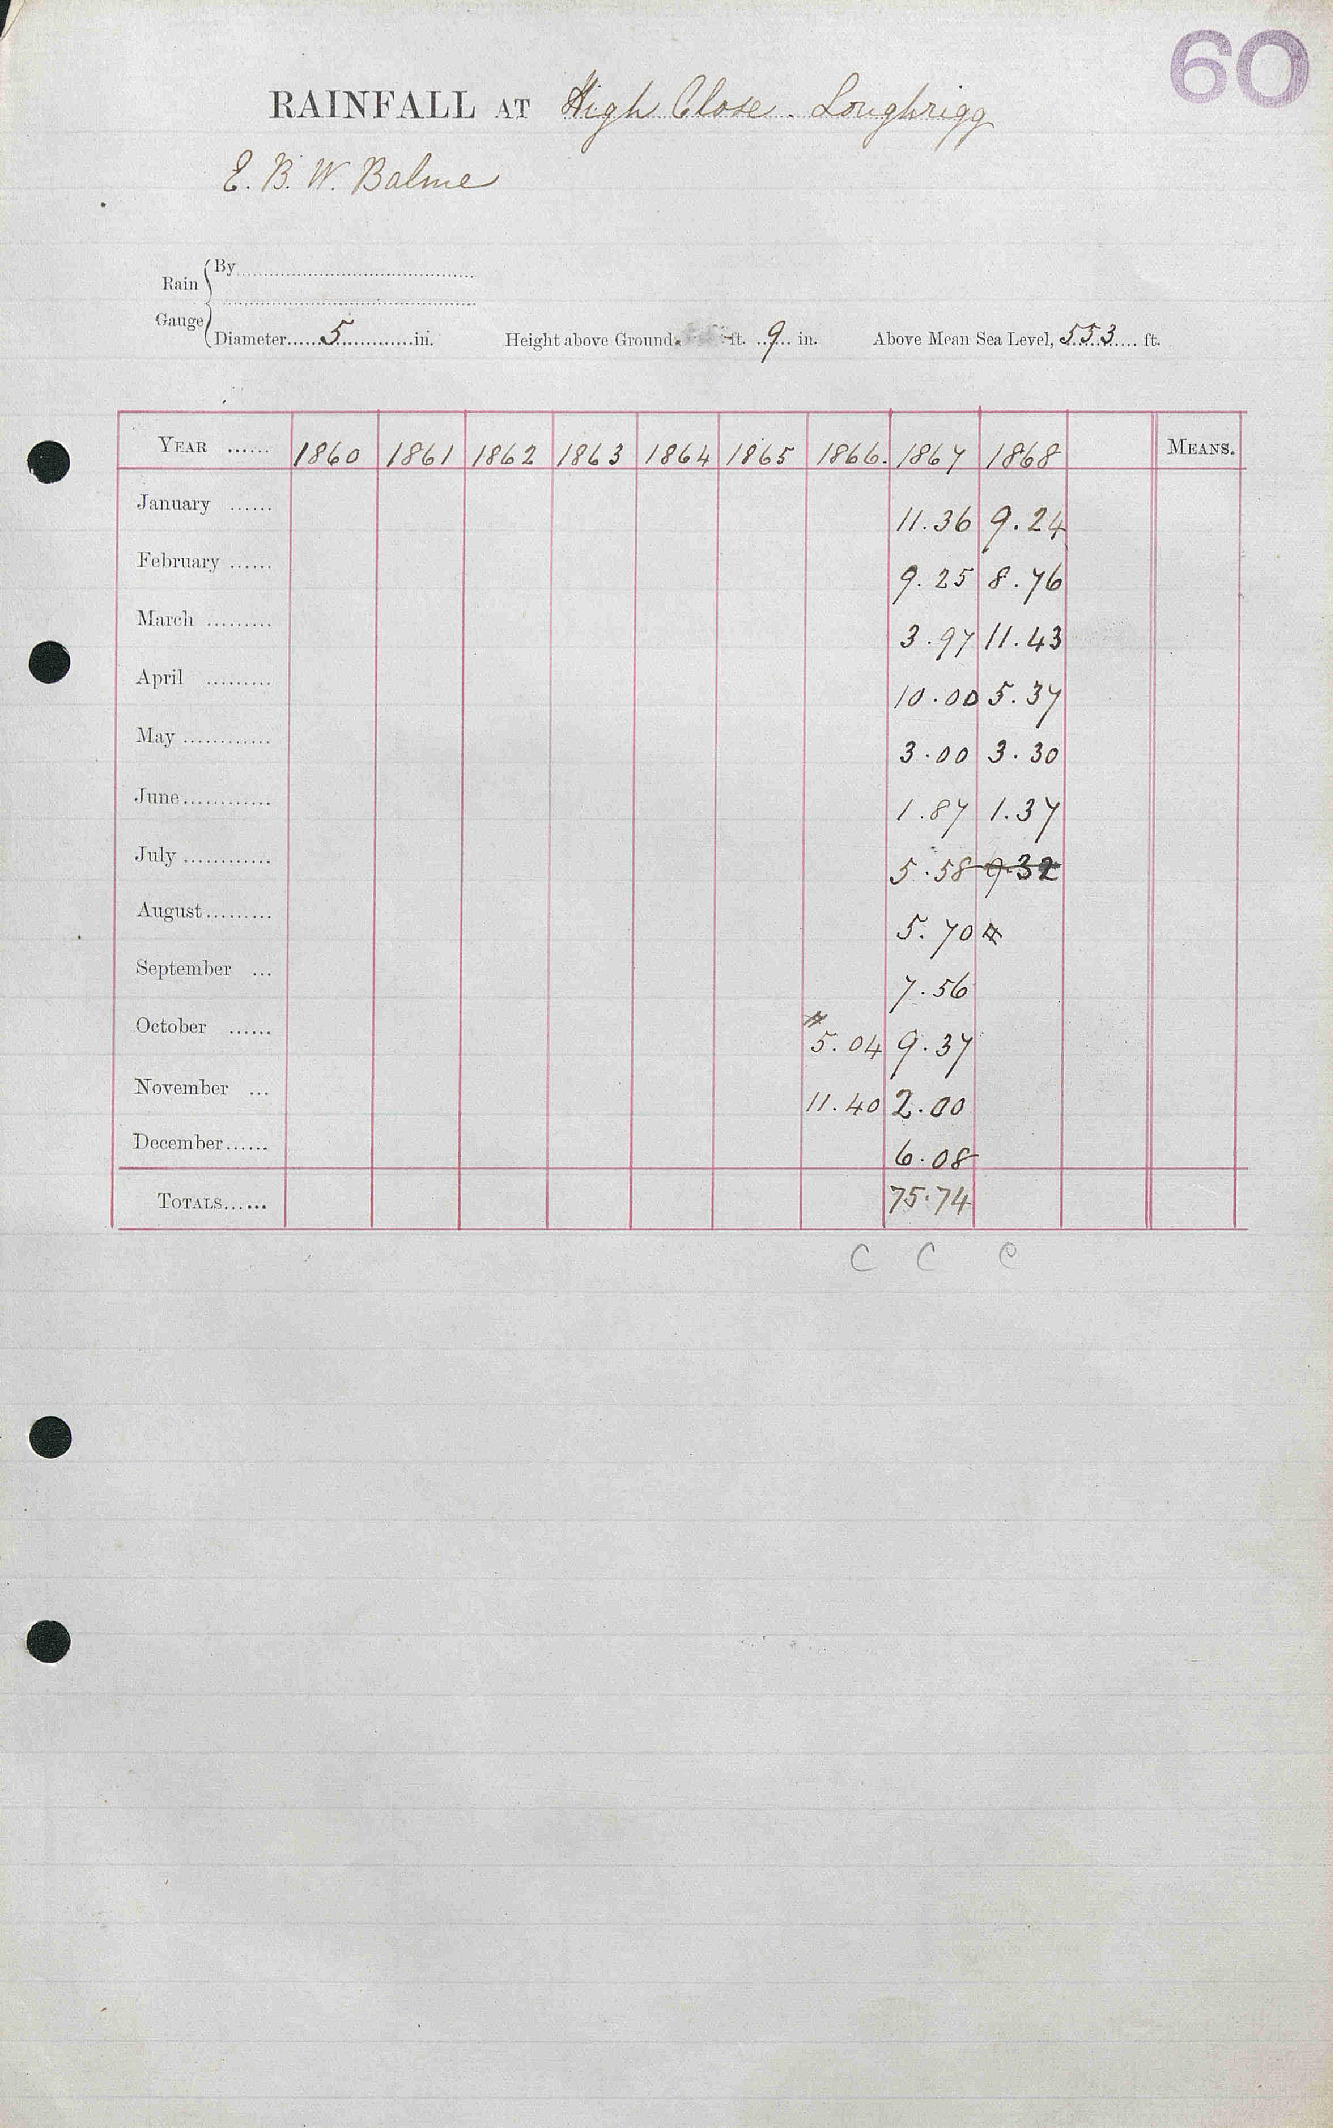 60
RAINFALL AT High Close. Loughrigg
E. B. W. Balme
Rain Gauge { By
Diameter 5 in. Height above Ground ft. 9 in. Above Mean Sea Level, 553 ft.
YEAR 1860 1861 1862 1863 1864 1865 1866. 1867 1868 MEANS.
January 11.36 9.24
February 9.25 8.76
March 3.97 11.43
April 10.00 5.37
May 3.00 3.30
June 1.87 1.37
July 5.58 9.32
August 5.70 #
September 7.56
October # 5.04 9.37
November 11.40 2.00
December 6.08
TOTALS 75.74
C C C